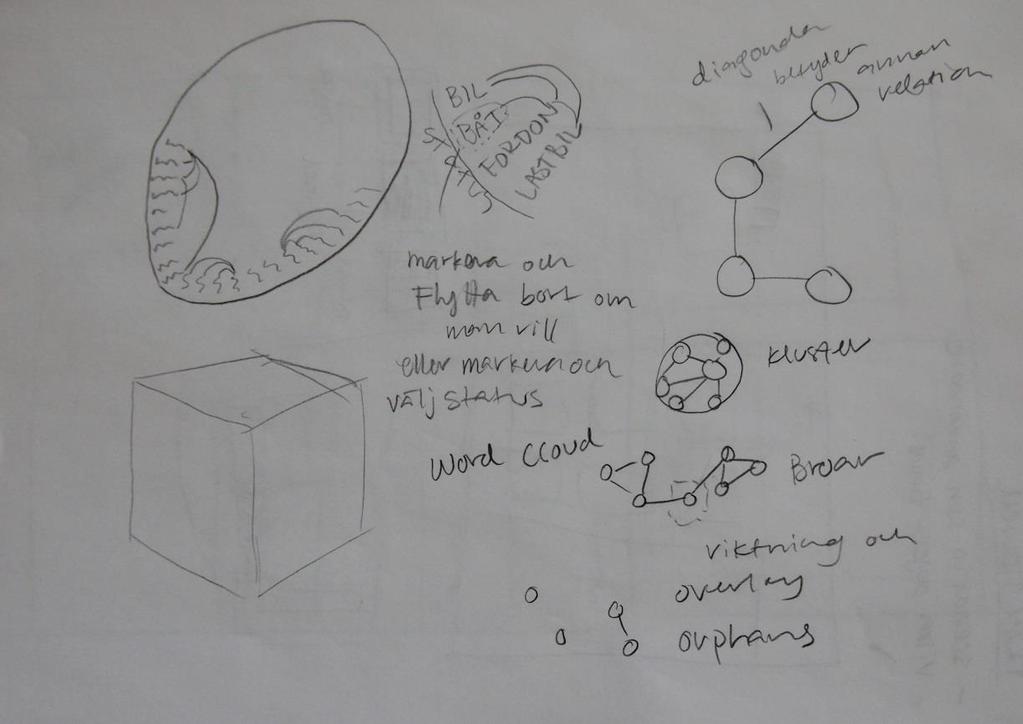 BIL
BÅT
FORDON
LASTBIL
diagonder
betyder
annan
relation
markera och
Flytta bort om
man vill
eller markera och
välj status
kluster
Word Cloud
Broar
viktning och
overlay
orphans